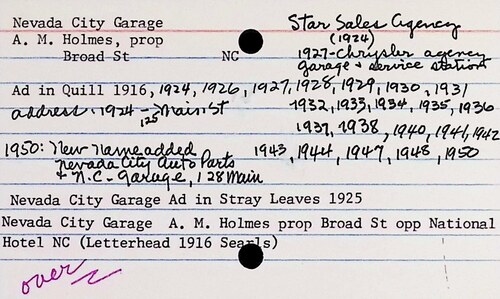 Nevada City Garage
A. M. Holmes, prop
Broad St NC
Star Sales Agency
(1924)
1927-Chrysler agency
garage + service station
Ad in Quill 1916, 1924, 1926, 1927, 1928, 1929, 1930, 1931
1932, 1933, 1934, 1935, 1936
address: 1924 - 125 Main St
1937, 1938, 1940, 1941, 1942
1950: New name added 1943, 1944, 1947, 1948, 1950
Nevada City Auto Parts
+ N.C. Garage, 128 Main
Nevada City Garage Ad in Stray Leaves 1925
Nevada City Garage A. M. Holmes prop Broad St opp National
Hotel NC (Letterhead 1916 Searls)
over